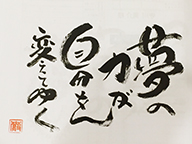 夢の
力が
自分を
変えてゆく